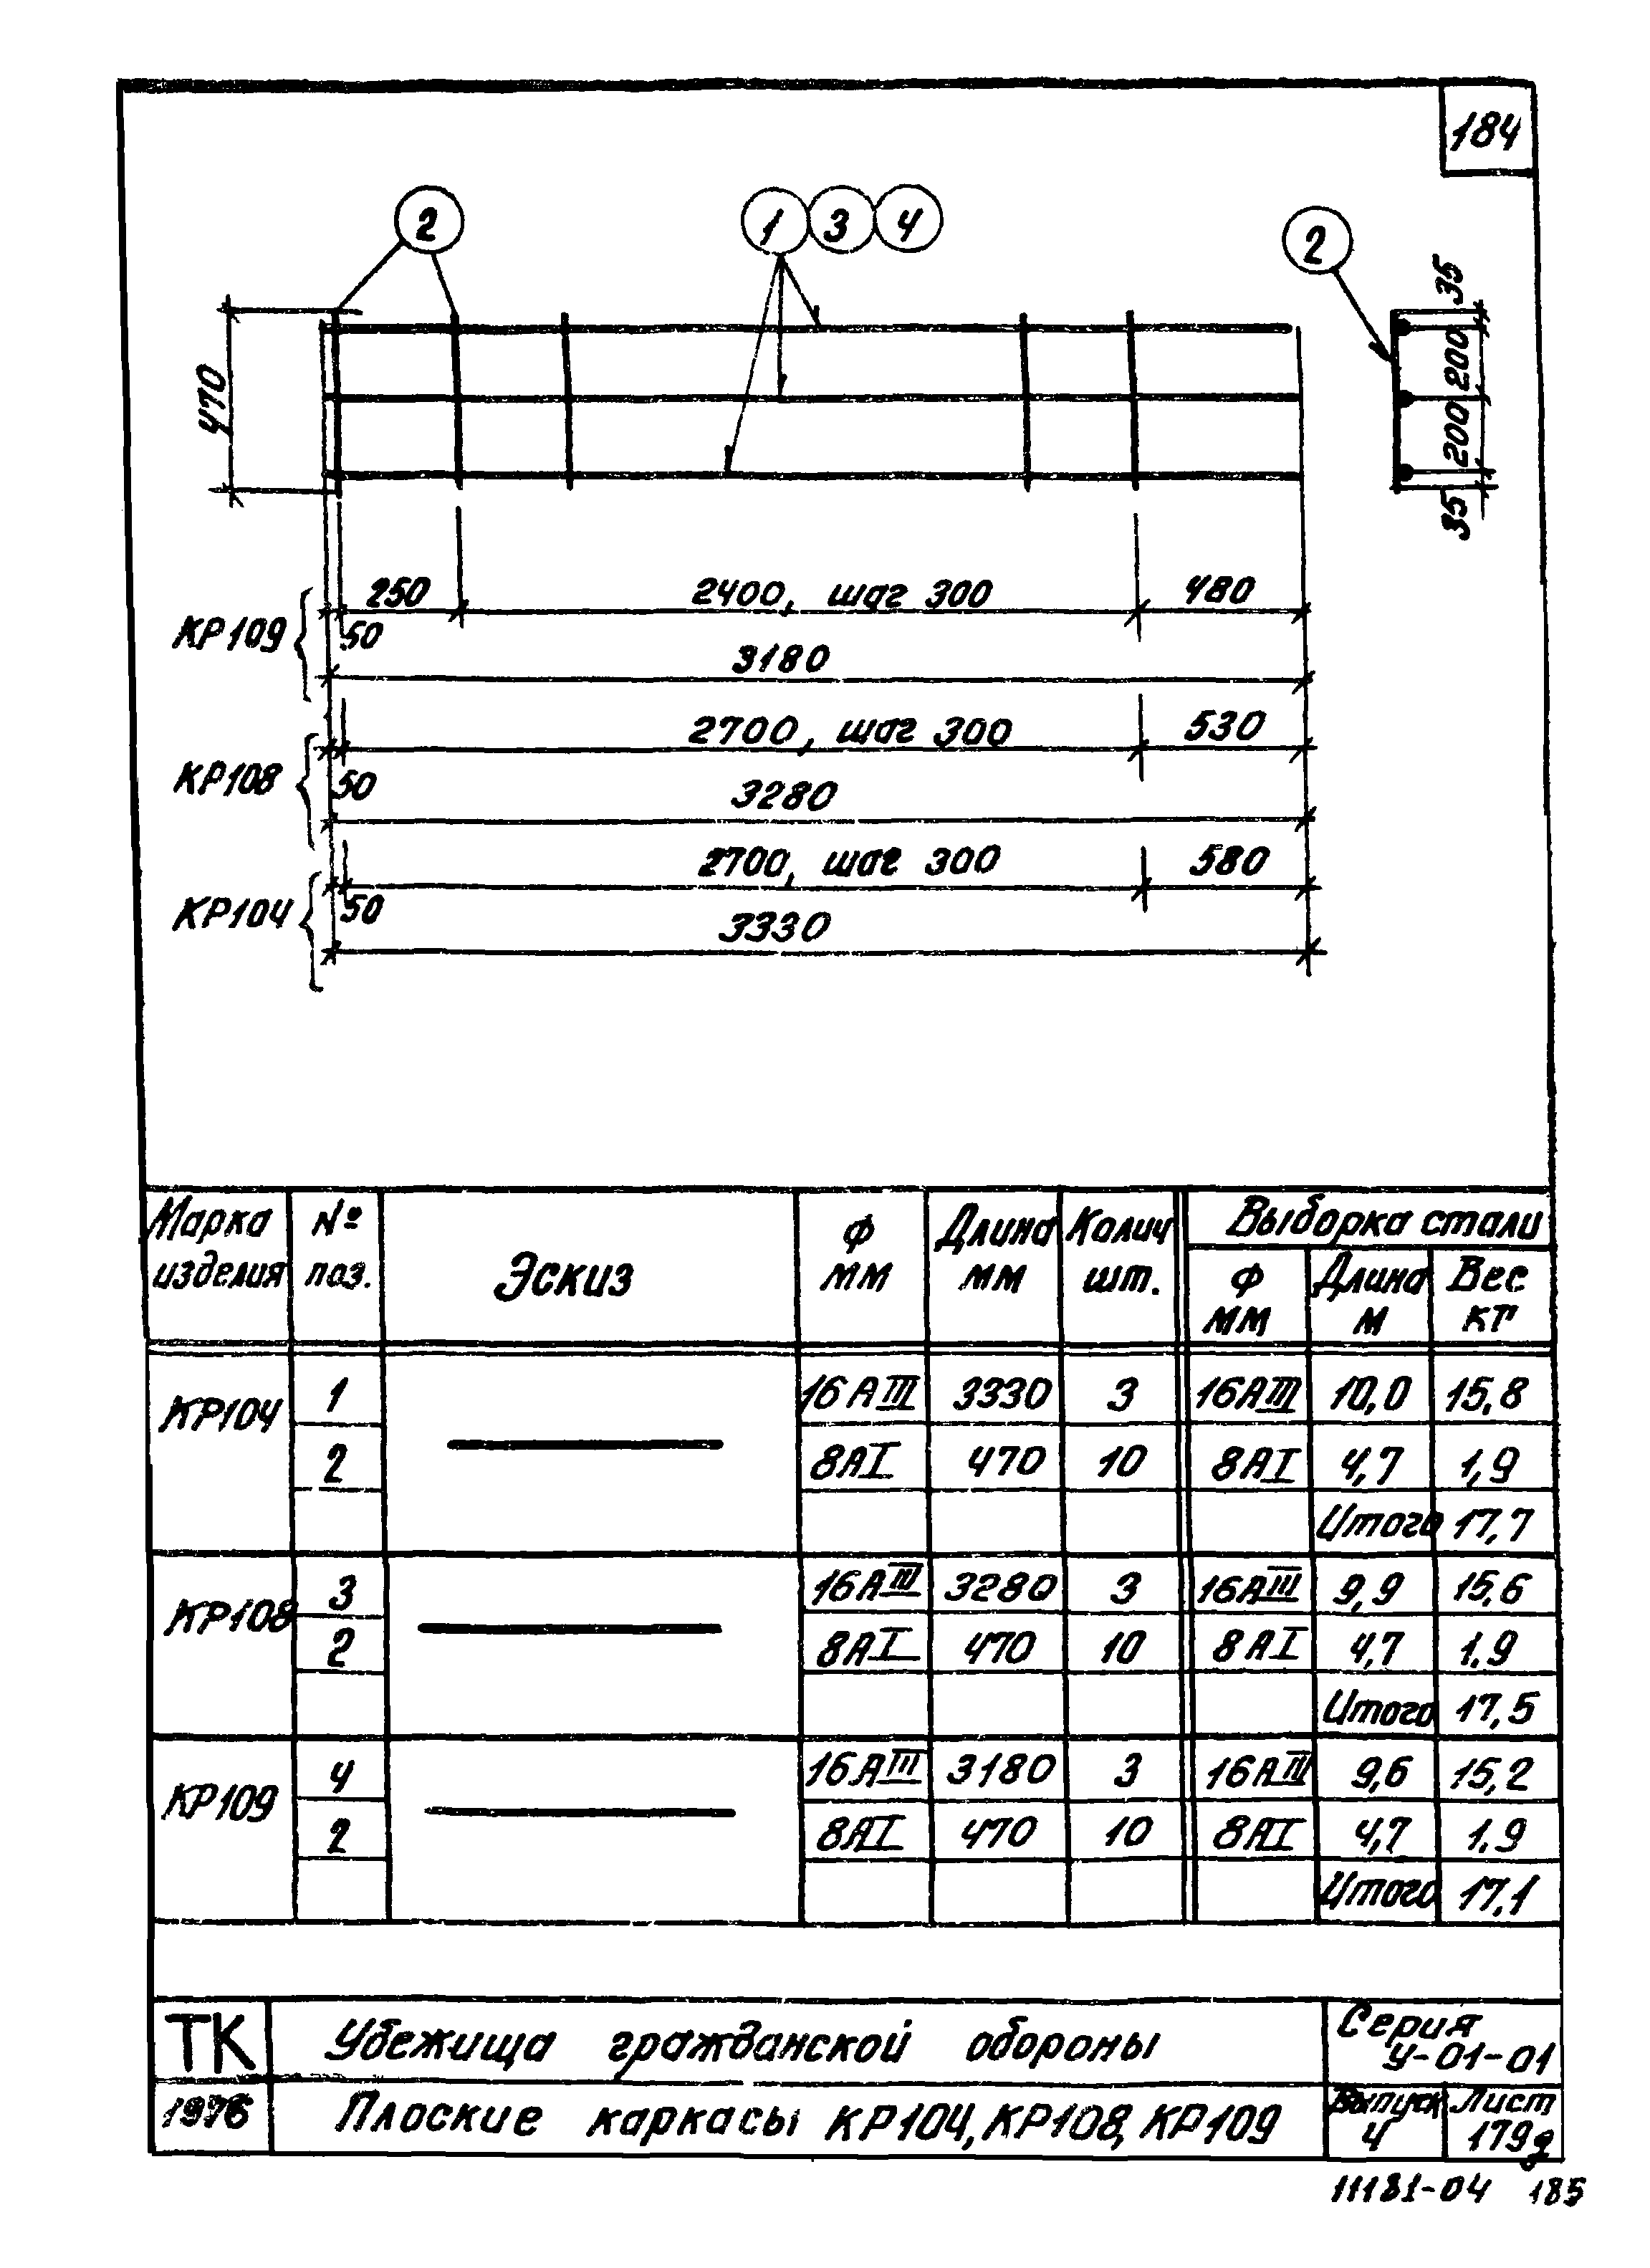 184
2
1 3 4
2
470
35
200
200
35
250 2400, шаг 300 480
КР109 50
3180
2700, шаг 300 530
КР108 50
3280
2700, шаг 300 580
КР104 50
3330
Марка изделия № поз. Эскиз Ф мм Длина мм Колич шт. Выборка стали
Ф мм Длина м Вес кг
КР104 1 16АIII 3330 3 16АIII 10,0 15,8
2 8АI 470 10 8АI 4,7 1,9
Итого 17,7
КР108 3 16АIII 3280 3 16АIII 9,9 15,6
2 8АI 470 10 8АI 4,7 1,9
Итого 17,5
КР109 4 16АIII 3180 3 16АIII 9,6 15,2
2 8АI 470 10 8АI 4,7 1,9
Итого 17,1
ТК Убежища гражданской обороны Серия У-01-01
1976 Плоские каркасы КР104, КР108, КР109 Выпуск 4 Лист 179д
11181-04 185